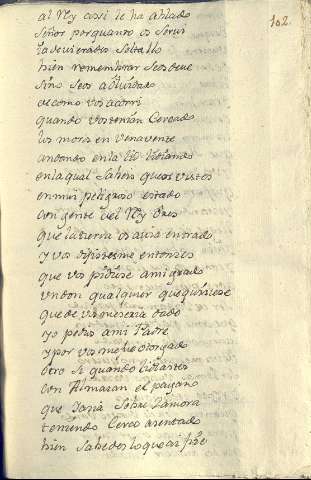 102.
al Rey assi le ha ablado
Señor porquanto os servi
la devierades Soltallo
bien remembrar Seos deve
sino Seos a olvidado
de como vos acorri
quando vos tenian Cercado
los moros en venavente
andando en la lid lidiando
en la qual Sabeis que os vistes
en mui peligroso estado
con gente del Rey Ores
que la tierra os avia entrado
y vos dijistesme entonces
que vos pidiese ami grado
un don qualquier que quisiese
que de vos me seria dado
yo pedia ami Padre
y por vos me fue otorgado
otro Si quando lidiastes
con Almazan el pagano
que Jazia Sobre Zamora
teniendo Cerco asentado
bien Sabedes lo que ai fiçe